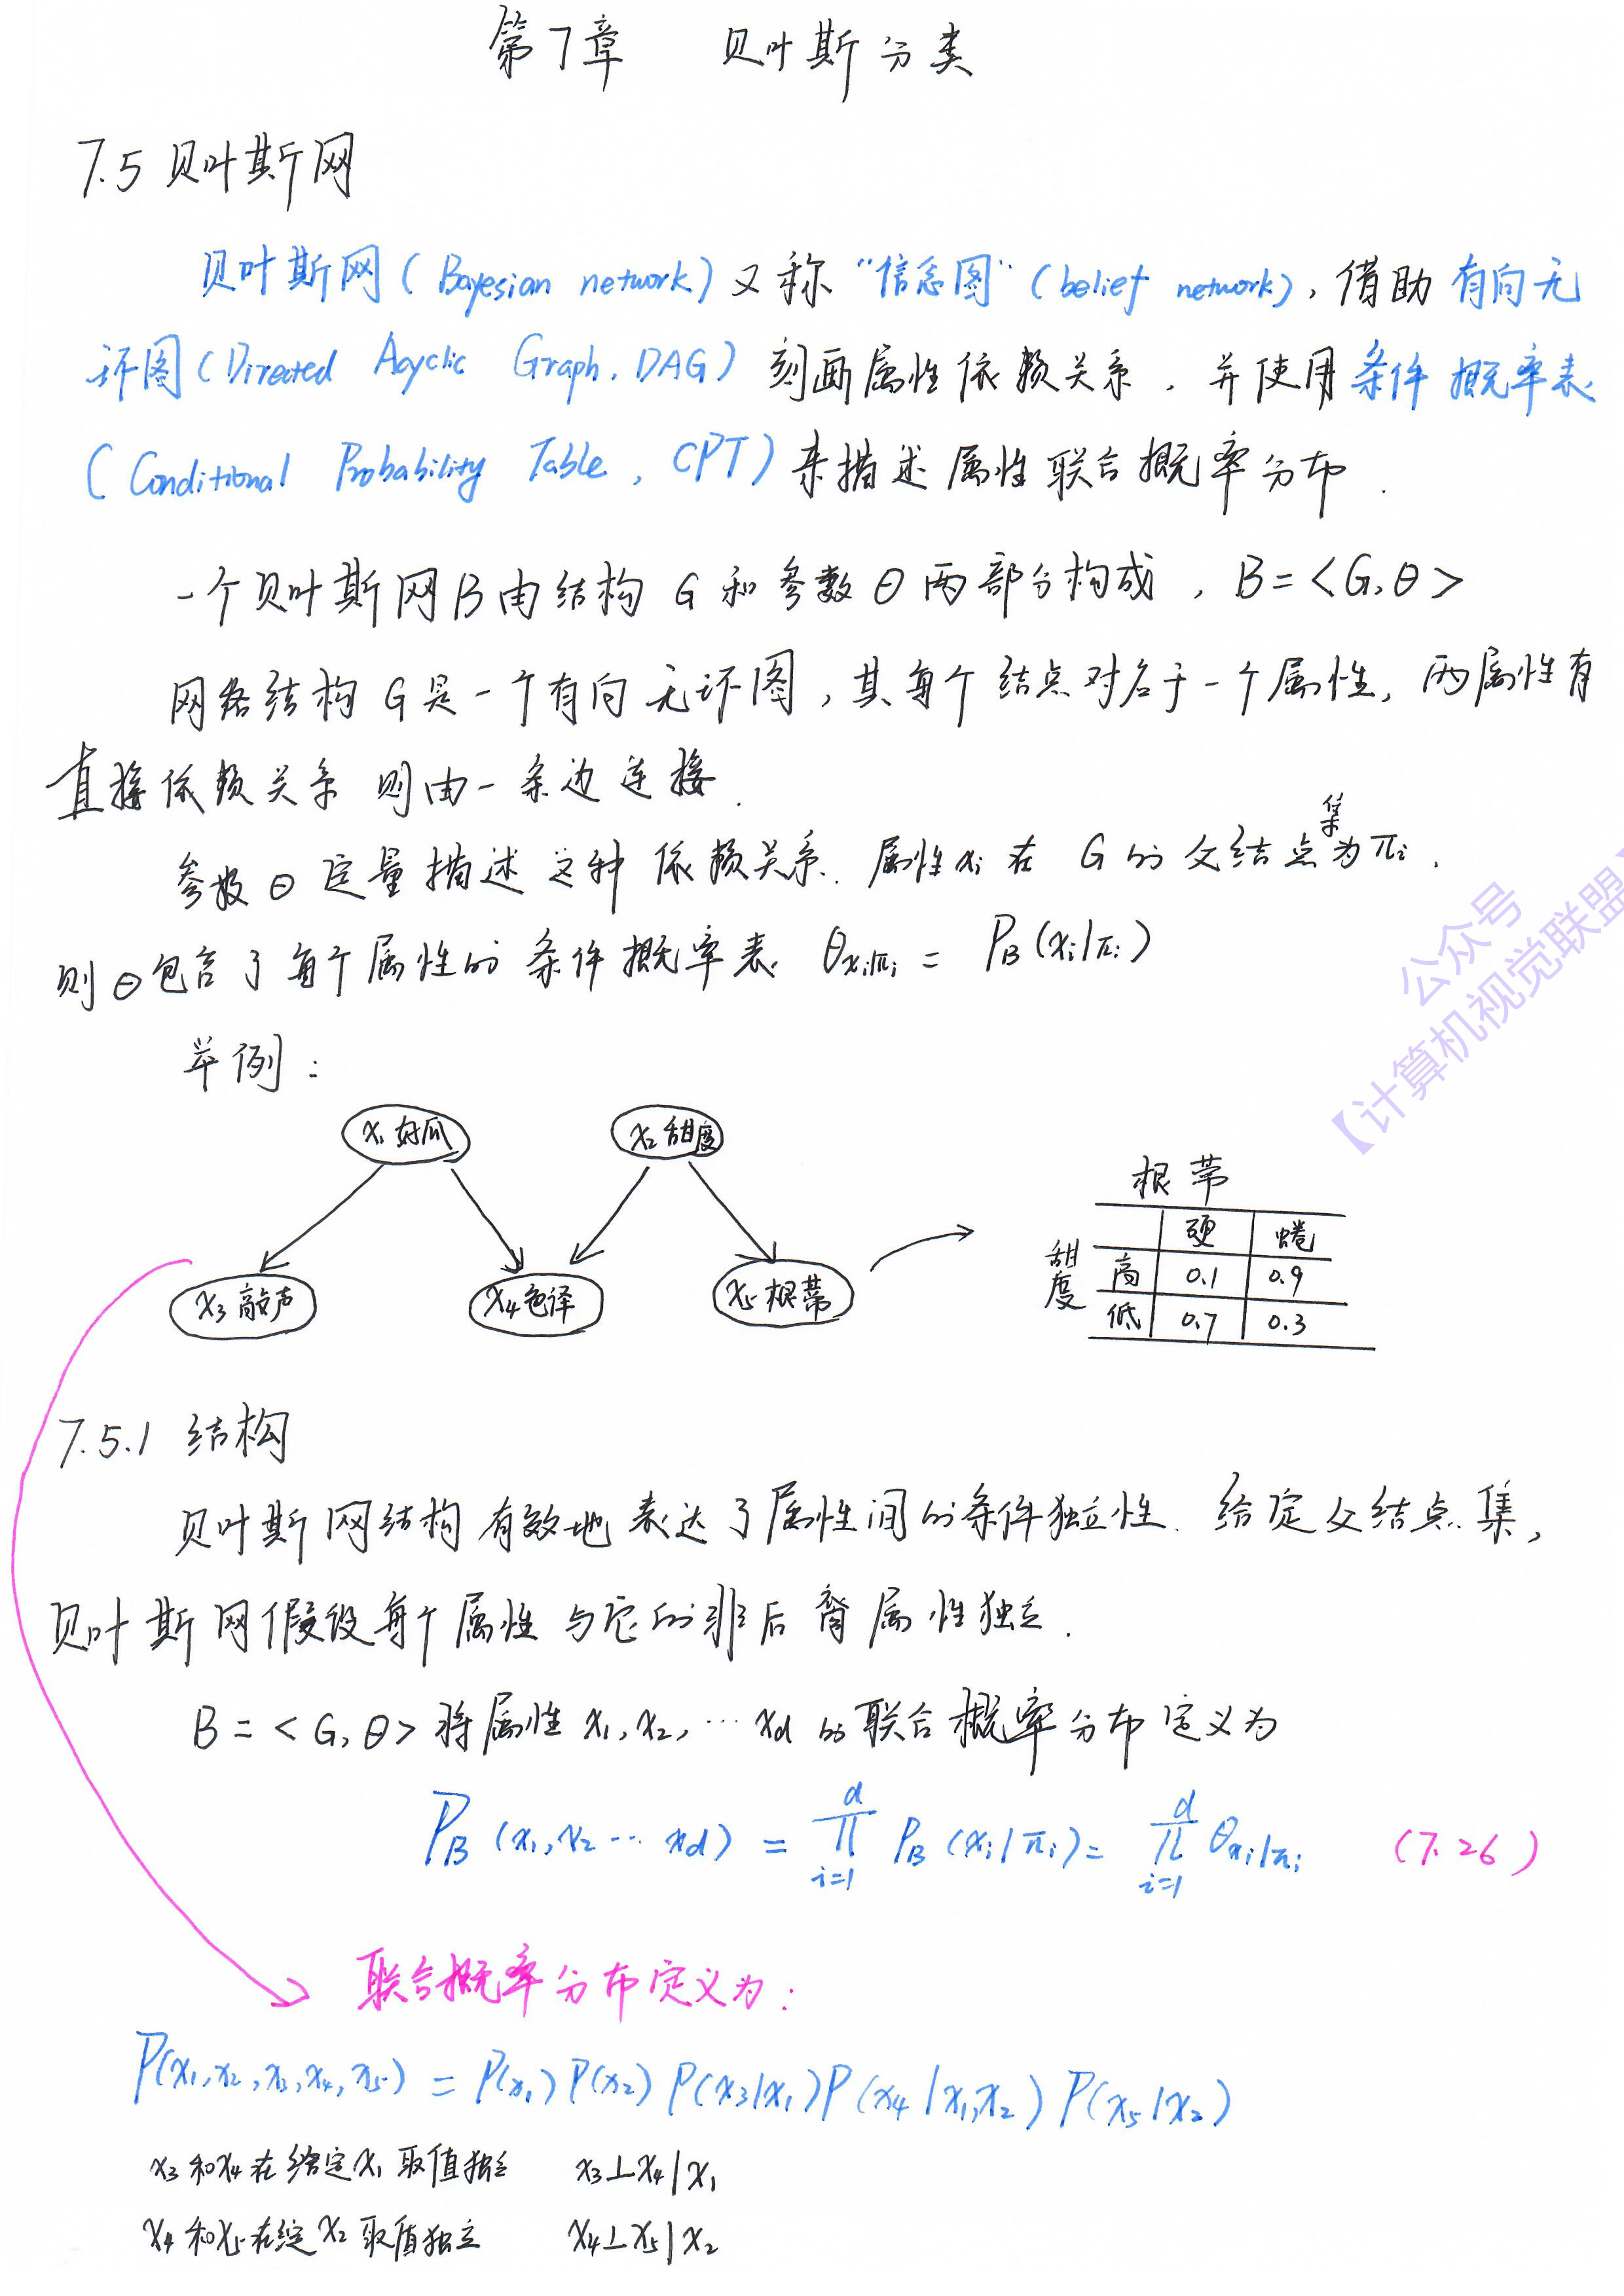 第7章 贝叶斯分类
7.5 贝叶斯网
贝叶斯网(Bayesian network)又称“信念图”(belief network),借助有向无
环图(Directed Acyclic Graph, DAG)刻画属性依赖关系,并使用条件概率表
(Conditional Probability Table, CPT)来描述属性联合概率分布.
一个贝叶斯网B由结构G和参数θ两部分构成,B=<G,θ>
网络结构G是一个有向无环图,其每个结点对应于一个属性,两属性有
直接依赖关系则由一条边连接.
参数θ定量描述这种依赖关系.属性xi在G的父结点集为πi.
则θ包含了每个属性的条件概率表 θxi|πi = PB(xi|πi)
公众号
【计算机视觉联盟
举例:
x1好瓜 x2甜度
根蒂
硬 蜷
甜度 高 0.1 0.9
低 0.7 0.3
x3敲声 x4色泽 x5根蒂
7.5.1 结构
贝叶斯网结构有效地表达了属性间的条件独立性.给定父结点集,
贝叶斯网假设每个属性与它的非后裔属性独立.
B=<G,θ>将属性x1,x2,…xd的联合概率分布定义为
PB(x1,x2…xd) = ∏ d i=1 PB(xi|πi) = ∏ d i=1 θxi|πi (7.26)
联合概率分布定义为:
P(x1,x2,x3,x4,x5) = P(x1)P(x2)P(x3|x1)P(x4|x1,x2)P(x5|x2)
x3和x4在给定x1取值独立 x3⊥x4|x1
x4和x5在给定x2取值独立 x4⊥x5|x2